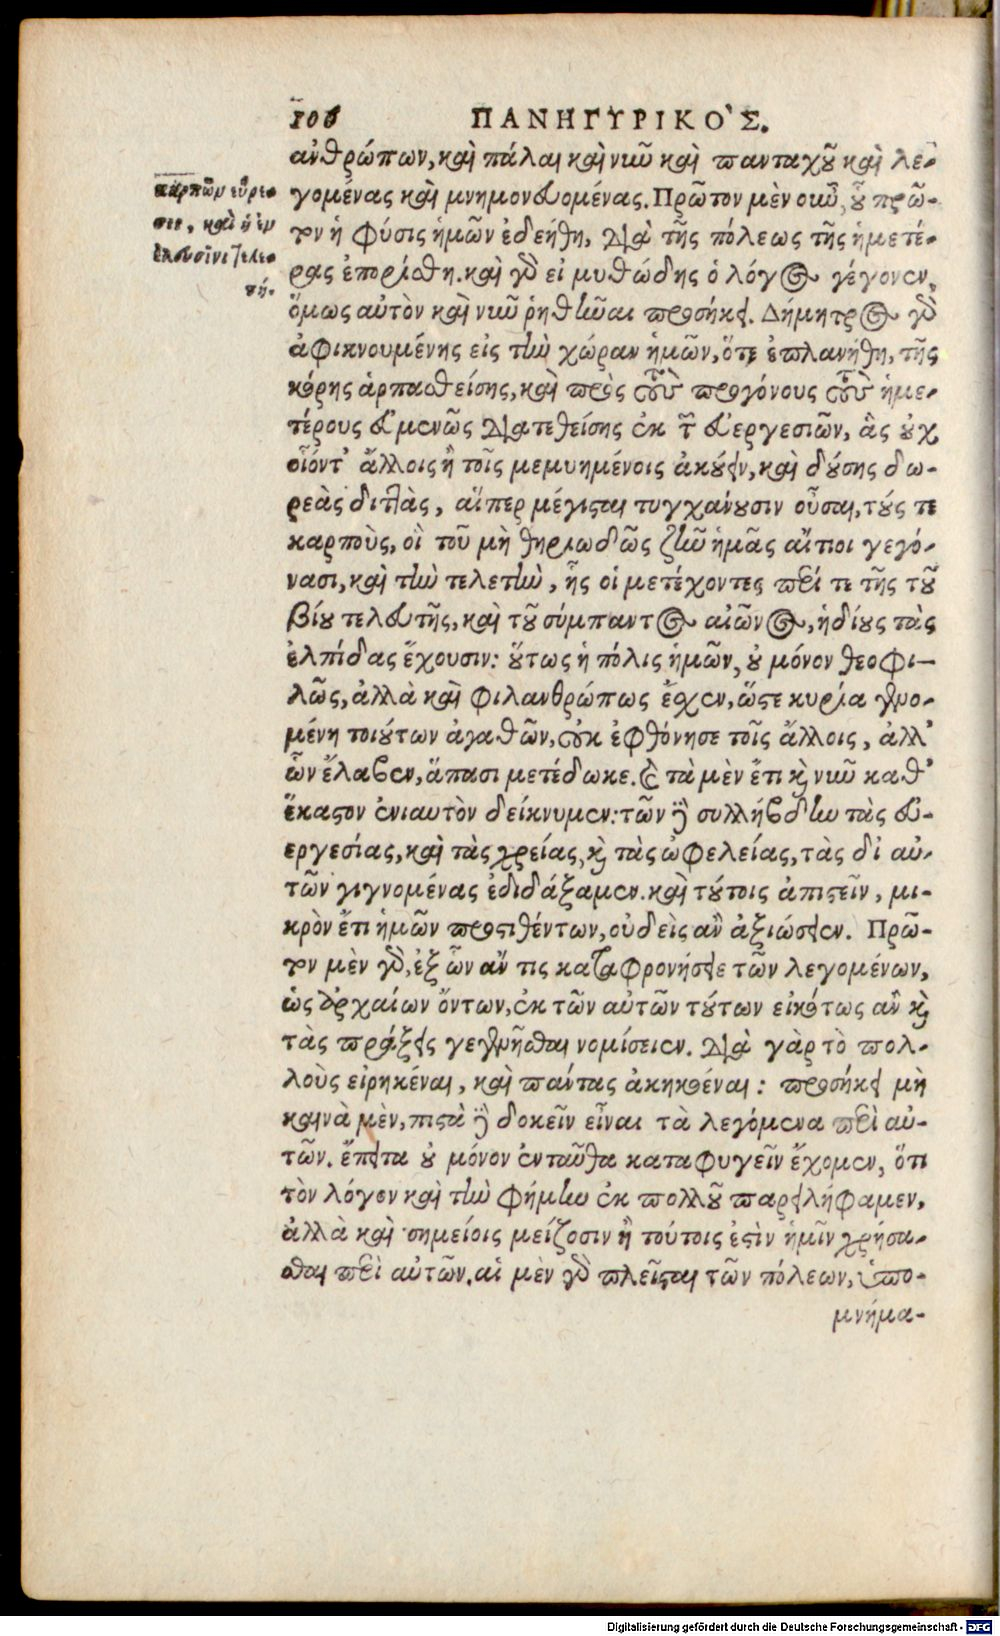 106 ΠΑΝΗΓΥΡΙΚΟ`Σ.
ἀνθρώπων, καὶ πάλαι καὶ νῦν καὶ πανταχοῦ καὶ λε-
γομένας καὶ μνημονευομένας. Πρῶτον μὲν οὖν, οὗ πρῶ-
τον ἡ φύσις ἡμῶν ἐδεήθη, διὰ τῆς πόλεως τῆς ἡμετέ-
ρας ἐπορίσθη. καὶ γὰρ εἰ μυθώδης ὁ λόγος γέγονεν,
ὅμως αὐτὸν καὶ νῦν ῥηθῆναι προσήκει. Δήμητρος γὰρ
ἀφικνουμένης εἰς τὴν χώραν ἡμῶν, ὅτε ἐπλανήθη, τῆς
κόρης ἁρπασθείσης, καὶ πρὸς τοὺς προγόνους τοὺς ἡμε-
τέρους εὐμενῶς διατεθείσης ἐκ τῶν εὐεργεσιῶν, ἃς οὐχ
οἷόντ' ἄλλοις ἢ τοῖς μεμυημένοις ἀκούειν, καὶ δούσης δω-
ρεὰς διτλὰς, αἵπερ μέγισται τυγχάνουσιν οὖσαι, τούς τε
καρποὺς, οἳ τοῦ μὴ θηριωδῶς ζῆν ἡμᾶς αἴτιοι γεγό-
νασι, καὶ τὴν τελετὴν, ἧς οἱ μετέχοντες περί τε τῆς τοῦ
βίου τελευτῆς, καὶ τοῦ σύμπαντος αἰῶνος, ἡδίους τὰς
ἐλπίδας ἔχουσιν: οὕτως ἡ πόλις ἡμῶν, οὐ μόνον θεοφι-
λῶς, ἀλλὰ καὶ φιλανθρώπως ἔσχεν, ὥστε κυρία γενο-
μένη τοιούτων ἀγαθῶν, οὐκ ἐφθόνησε τοῖς ἄλλοις, ἀλλ'
ὧν ἔλαβεν, ἅπασι μετέδωκε. Καὶ τὰ μὲν ἔτι καὶ νῦν καθ'
ἕκαστον ἐνιαυτὸν δείκνυμεν: τῶν δὲ συλλήβδην τὰς εὐ-
εργεσίας, καὶ τὰς χρείας, καὶ τὰς ὠφελείας, τὰς δι' αὐ-
τῶν γιγνομένας ἐδιδάξαμεν. καὶ τούτοις ἀπιστεῖν, μι-
κρὸν ἔτι ἡμῶν προστιθέντων, οὐδεὶς ἂν ἀξιώσειεν. Πρῶ-
τον μὲν γὰρ, ἐξ ὧν ἄν τις καταφρονήσειε τῶν λεγομένων,
ὡς ἀρχαίων ὄντων, ἐκ τῶν αὐτῶν τούτων εἰκότως ἂν καὶ
τὰς πράξεις γεγενῆσθαι νομίσειεν. διὰ γὰρ τὸ πολ-
λοὺς εἰρηκέναι, καὶ πάντας ἀκηκοέναι: προσήκει μὴ
καινὰ μὲν, πιστὰ δὲ δοκεῖν εἶναι τὰ λεγόμενα περὶ αὐ-
τῶν. ἔπειτα οὐ μόνον ἐνταῦθα καταφυγεῖν ἔχομεν, ὅτι
τὸν λόγον καὶ τὴν φήμην ἐκ πολλοῦ παρειλήφαμεν,
ἀλλὰ καὶ σημείοις μείζοσιν ἢ τούτοις ἐστὶν ἡμῖν χρήσα-
σθαι περὶ αὐτῶν. αἱ μὲν γὰρ πλεῖσται τῶν πόλεων, ὑπο-
μνήμα-
καρπῶν εὕρε-
σις, καὶ ἡ ἐν
ἐλευσῖνι τελε-
τή.
Digitalisierung gefördert durch die Deutsche Forschungsgemeinschaft - DFG